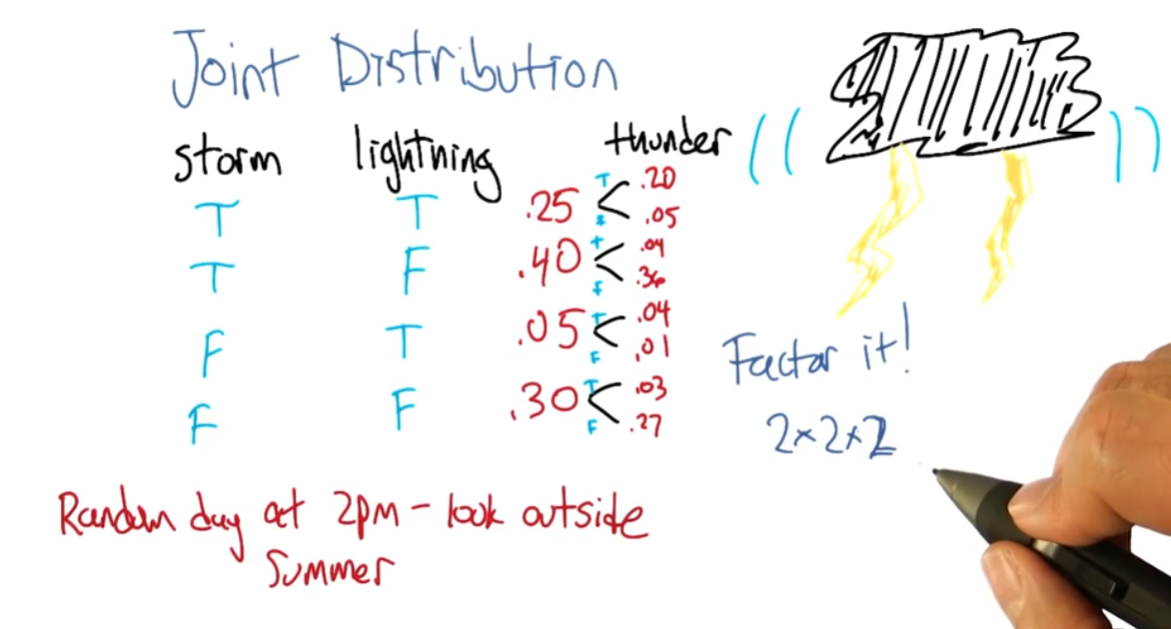 Joint Distribution
storm lightning thunder
T T .25 T .20
F .05
T F .40 T .04
F .36
F T .05 T .04
F .01
F F .30 T .03
F .27
Factor it!
2×2×2
Random day at 2pm - look outside
Summer